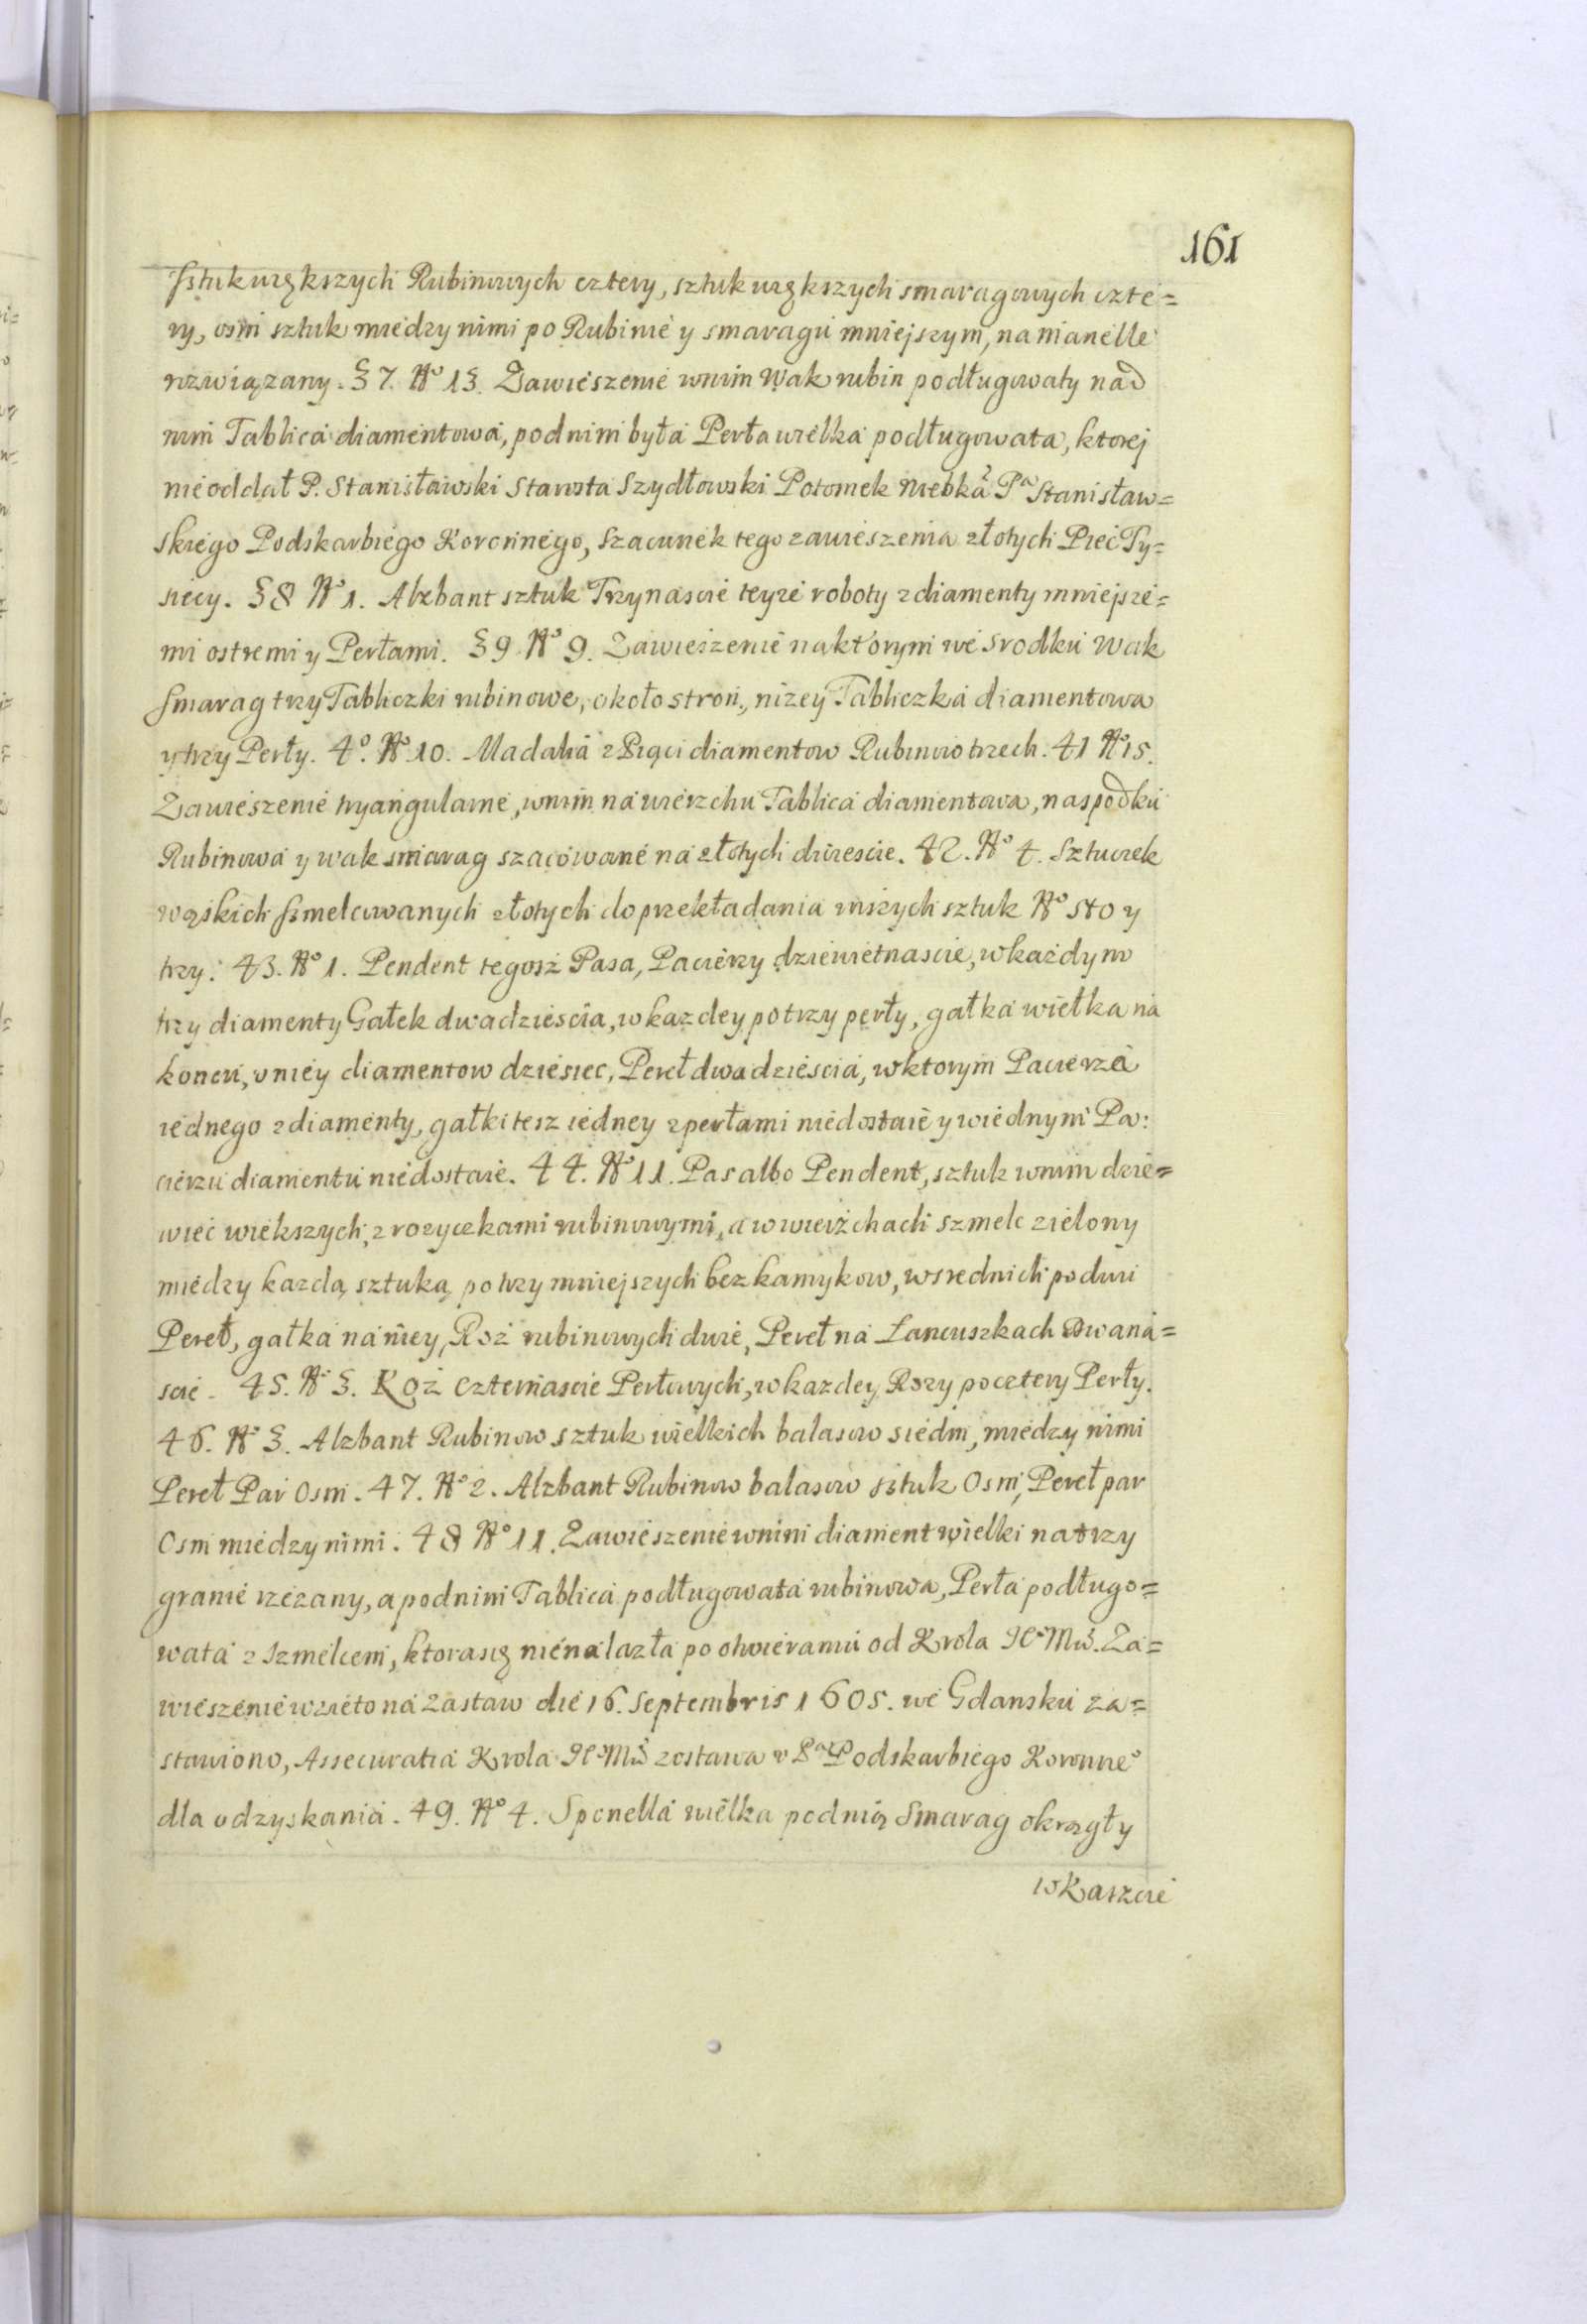 161
sztuk większych Rubinowych cztery, sztuk większych smaragowych czte=
ry, osm sztuk miedzy nimi po Rubinie y smaragu mniejszym, na manelle
rozwiązany. 37. No 13. Zawieszenie wnim Wak rubin podługowaty nad
nim Tablica diamentowa, pod nim była Perła wielka podługowata, ktorej
nie oddał P. Stanisławski Starosta Szydłowski Potomek Niebka Pa Stanisław=
skiego Podskarbiego Koronnego, Szacunek tego zawieszenia złotych Pieć Ty=
siecy. 38 No 1. Alzbant sztuk Trzynascie teyze roboty z diamenty mniejsze=
mi ostremi y Perłami. 39 No 9. Zawieszenie na ktorym we srodku Wak
Smarag trzy Tabliczki rubinowe, około stron, nizey Tabliczka diamentowa
y trzy Perły. 4o. No 10. Madalia z Piąci diamentow Rubinow trzech. 41 No 15.
Zawieszenie tryangularne, wnim na wierzchu Tablica diamentowa, na spodku
Rubinowa y wak smarag szacowane na złotych dwiescie. 42. No 4. Sztuczek
wąskich szmelcowanych złotych do przekładania inszych sztuk No sto y
trzy. 43. No 1. Pendent tegosz Pasa, Pacierzy dziewietnascie, w kazdym
trzy diamenty Gałek dwadziescia, w kazdey po trzy perły, gałka wielka na
koncu, v niey diamentow dziesiec, Pereł dwadziescia, w ktorym Pacierza
iednego z diamenty, gałki tesz iedney z perłami niedostaie y wiednym Pa:
cierzu diamentu niedostaie. 44. No 11. Pas albo Pendent, sztuk wnim dzie=
wieć wiekszych, z rozyczkami rubinowymi, a w wierzchach szmelc zielony
miedzy kazdą sztuką po trzy mniejszych bez kamykow, w srednich po dwi
Pereł, gałka na niey, Roż rubinowych dwie, Pereł na Lancuszkach Dwana=
scie. 45. No 3. Roż czternascie Perłowych, w kazdey Rozy po cztery Perły.
46. No 3. Alzbant Rubinow sztuk wielkich balasow siedm, miedzy nimi
Pereł Par osm. 47. No 2. Alzbant Rubinow balasow sztuk Osm, Pereł par
Osm miedzy nimi. 48 No 11. Zawieszenie wnim diament wielki na trzy
granie rzezany, a pod nim Tablica podługowata rubinowa, Perła podługo=
wata z szmelcem, ktora się nienalazła po otwieraniu od Krola Je Mci. Za=
wieszenie wzieto na zastaw die 16. Septembris 1605. we Gdansku za=
stawiono, Assecuratia Krola Je Mci zostawa v Pa Podskarbiego Koronneo
dla odzyskania. 49. No 4. Sponella wielka pod nią Smarag okrągły
w Kaszcie